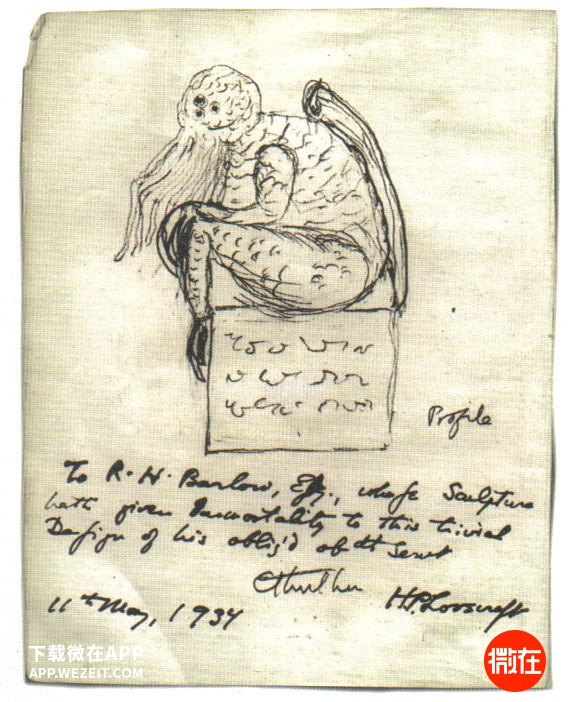 Profile
To R. H. Barlow, Esq., whose Sculpture
hath given Immortality to this trivial
Design of his oblig'd obdt Servt
Cthulhu
H.P.Lovecraft
11th May, 1934
下载微在APP
APP.WEZEIT.COM
微在